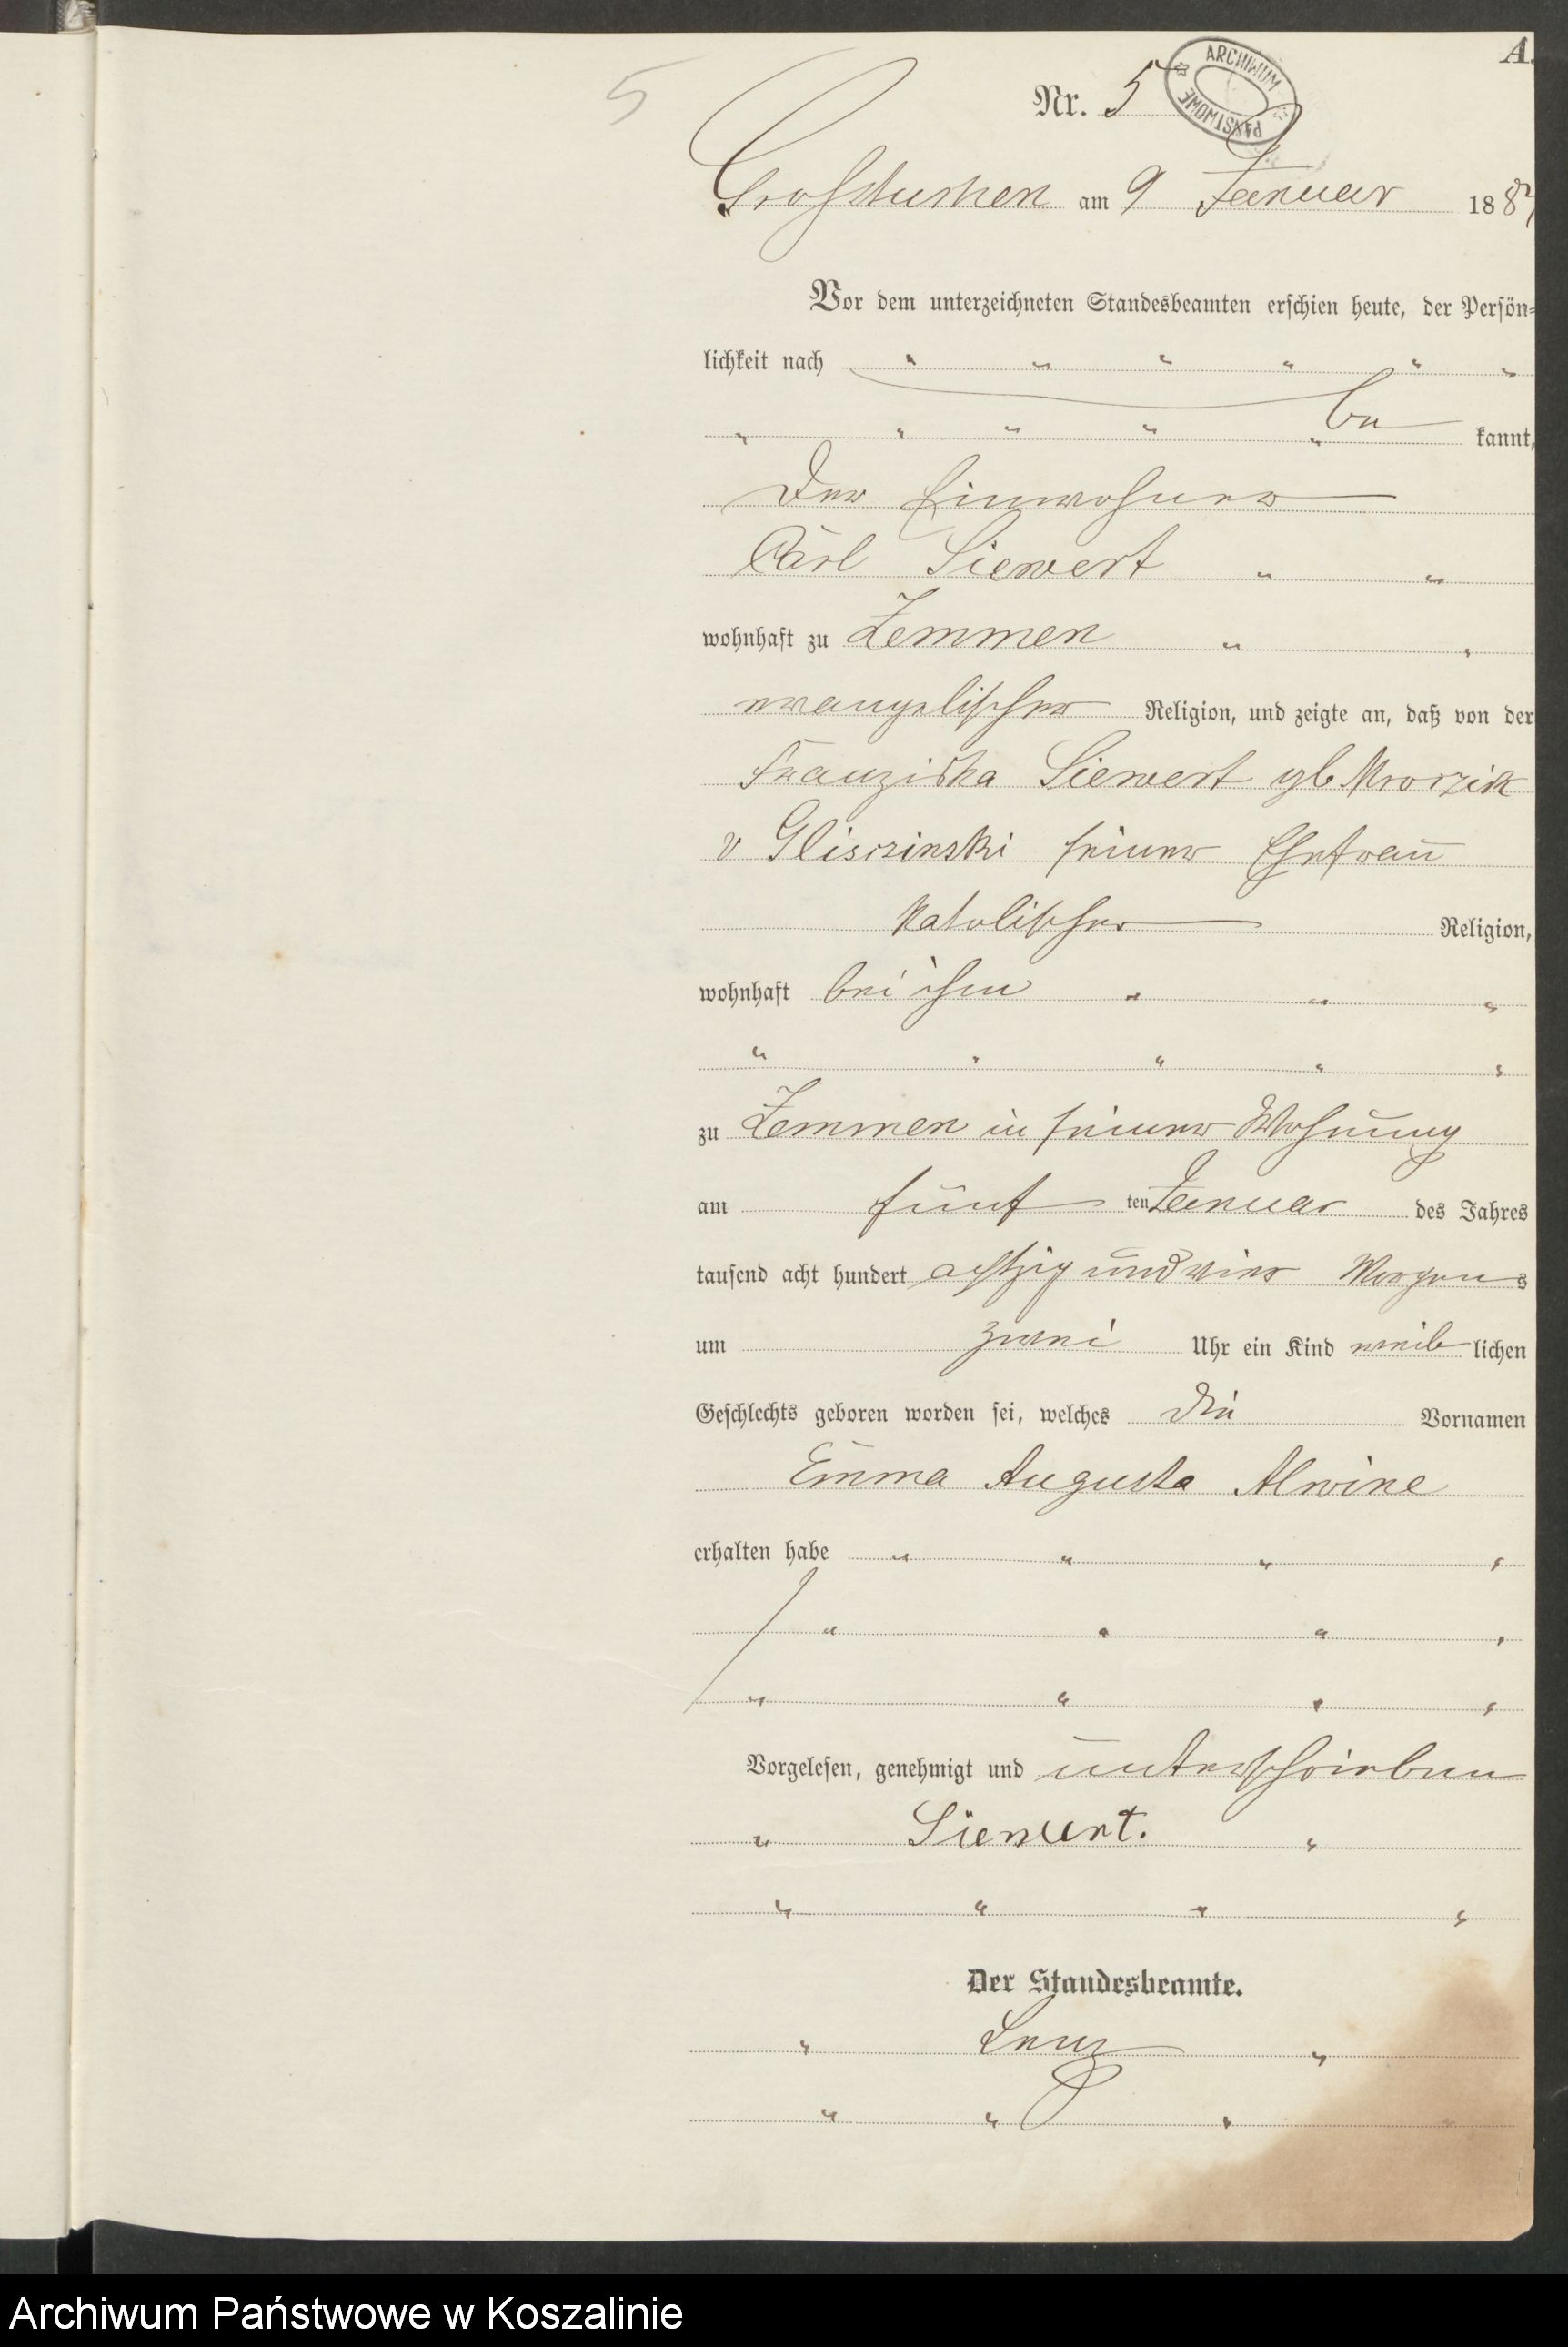 A.
5
Nr. 5
ARCHIWUM PAŃSTWOWE
Groß Tuchen am 9 Januar 1884
Vor dem unterzeichneten Standesbeamten erschien heute, der Persön-
lichkeit nach " " " " " "
" " " " " be kannt,
Der Einwohner
Carl Siewert " "
wohnhaft zu Zemmen " "
evangelischer Religion, und zeigte an, daß von der
Franziska Siewert gb Mrorzik
v Gliscrinski seiner Ehefrau
katolischer Religion,
wohnhaft bei ihm " " "
" " " " "
zu Zemmen in seiner Wohnung
am fünf ten Januar des Jahres
tausend acht hundert achtzig und vier Morgens
um zwei Uhr ein Kind weib lichen
Geschlechts geboren worden sei, welches die Vornamen
Emma Augusta Alwine
erhalten habe " " " "
" " " "
" " " "
Vorgelesen, genehmigt und unterschrieben
" Siewert. "
" " " "
Der Standesbeamte.
" Lenz "
" " "
Archiwum Państwowe w Koszalinie